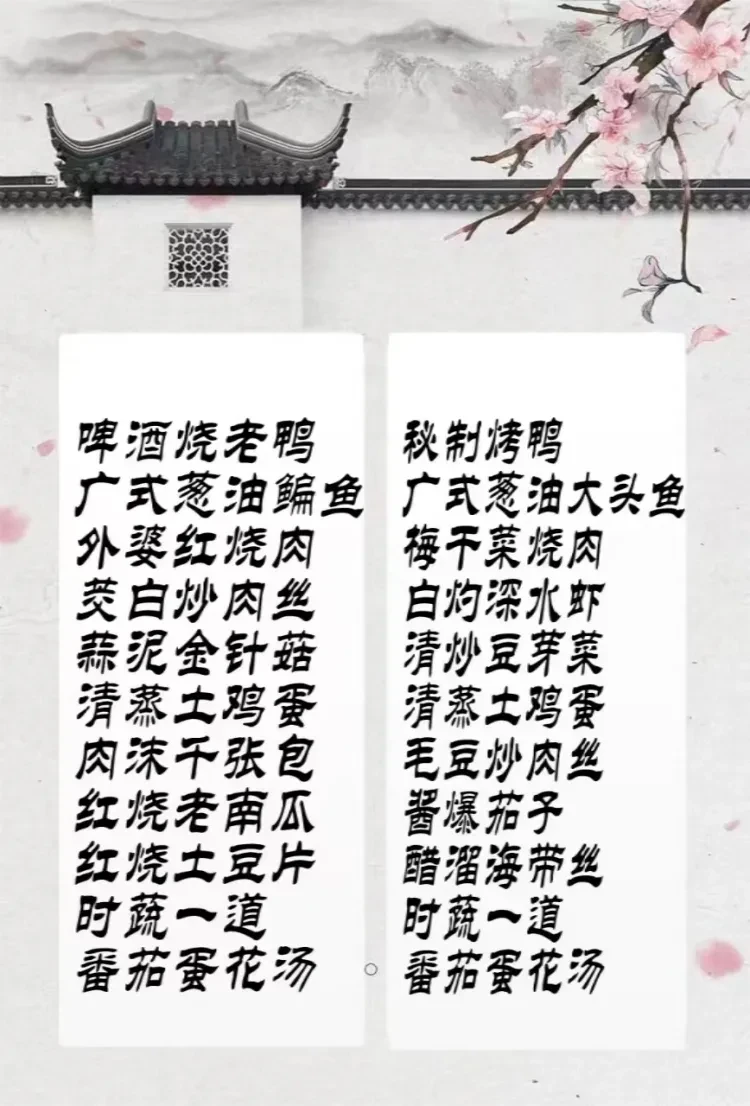 啤酒烧老鸭
广式葱油鳊鱼
外婆红烧肉
茭白炒肉丝
蒜泥金针菇
清蒸土鸡蛋
肉沫千张包
红烧老南瓜
红烧土豆片
时蔬一道
番茄蛋花汤
秘制烤鸭
广式葱油大头鱼
梅干菜烧肉
白灼深水虾
清炒豆芽菜
清蒸土鸡蛋
毛豆炒肉丝
酱爆茄子
醋溜海带丝
时蔬一道
番茄蛋花汤